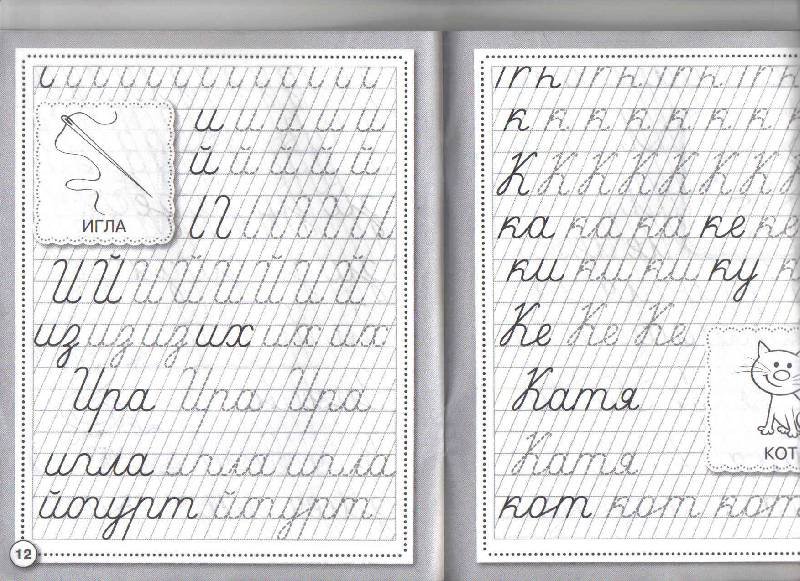 и й й й й
й й й й й
ИГЛА
И Й И Й И Й И Й
из из из их их их
Ира Ира Ира
игла игла игла
йогурт йогурт
12
к к к к к к к к
К К К К К К К К
ка ка ка ке ке
ки ки ки ку
Ке Ке Ке
Катя
КОТ
Катя
кот кот кот